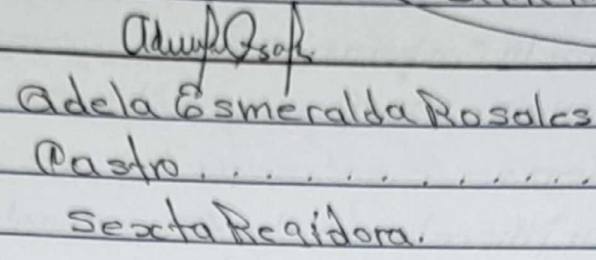 Adela Esmeralda Rosales
Castro. . . . . . . . . . . . .
Sexta Regidora.